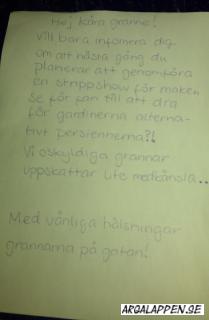 Hej kära granne!
Vill bara informera dig
om att nästa gång du
planerar att genomföra
en strippshow för maken
se för fan till att dra
för gardinerna alterna-
tivt persiennerna?!
Vi oskyldiga grannar
uppskattar lite medkänsla..
Med vänliga hälsningar
grannarna på gatan!
ARGALAPPEN.SE